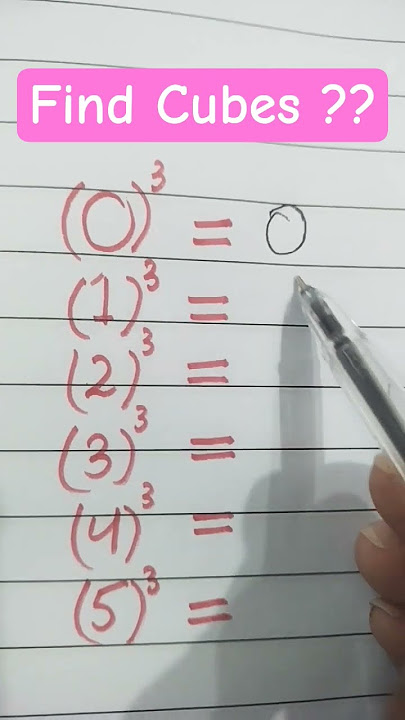 Find Cubes ??
(0)³ = 0
(1)³ =
(2)³ =
(3)³ =
(4)³ =
(5)³ =